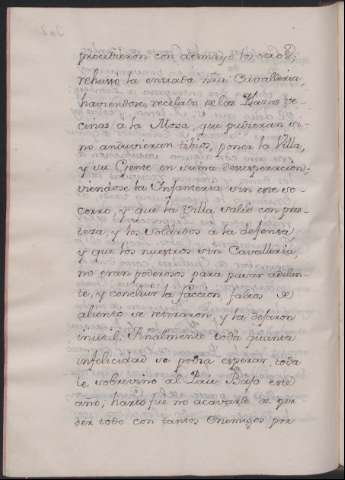 procedieron con desmayo los va
rehuso la entrada nra Cavalleria,
haviendose recelado de las Plazas ve-
cinas a la Mosa, que pudieran si
no anduvieran tibios, poner la Villa,
y su Gente en suma desesperacion:
viendose la Infanteria sin este so-
corro, y que la Villa valio con pres-
teza, y los soldados a la defensa
y que los nuestros sin Cavalleria,
no eran poderosos para pasar adelan-
te, y concluir la faccion faltos de
aliento se retiraron, y la dejaron
inutil. Finalmente toda quanta
infelicidad se podia esperar, toda
le sobrevino al Pais Bajo este
año, harto fue no acavarse de per-
der todo con tantos enemigos por